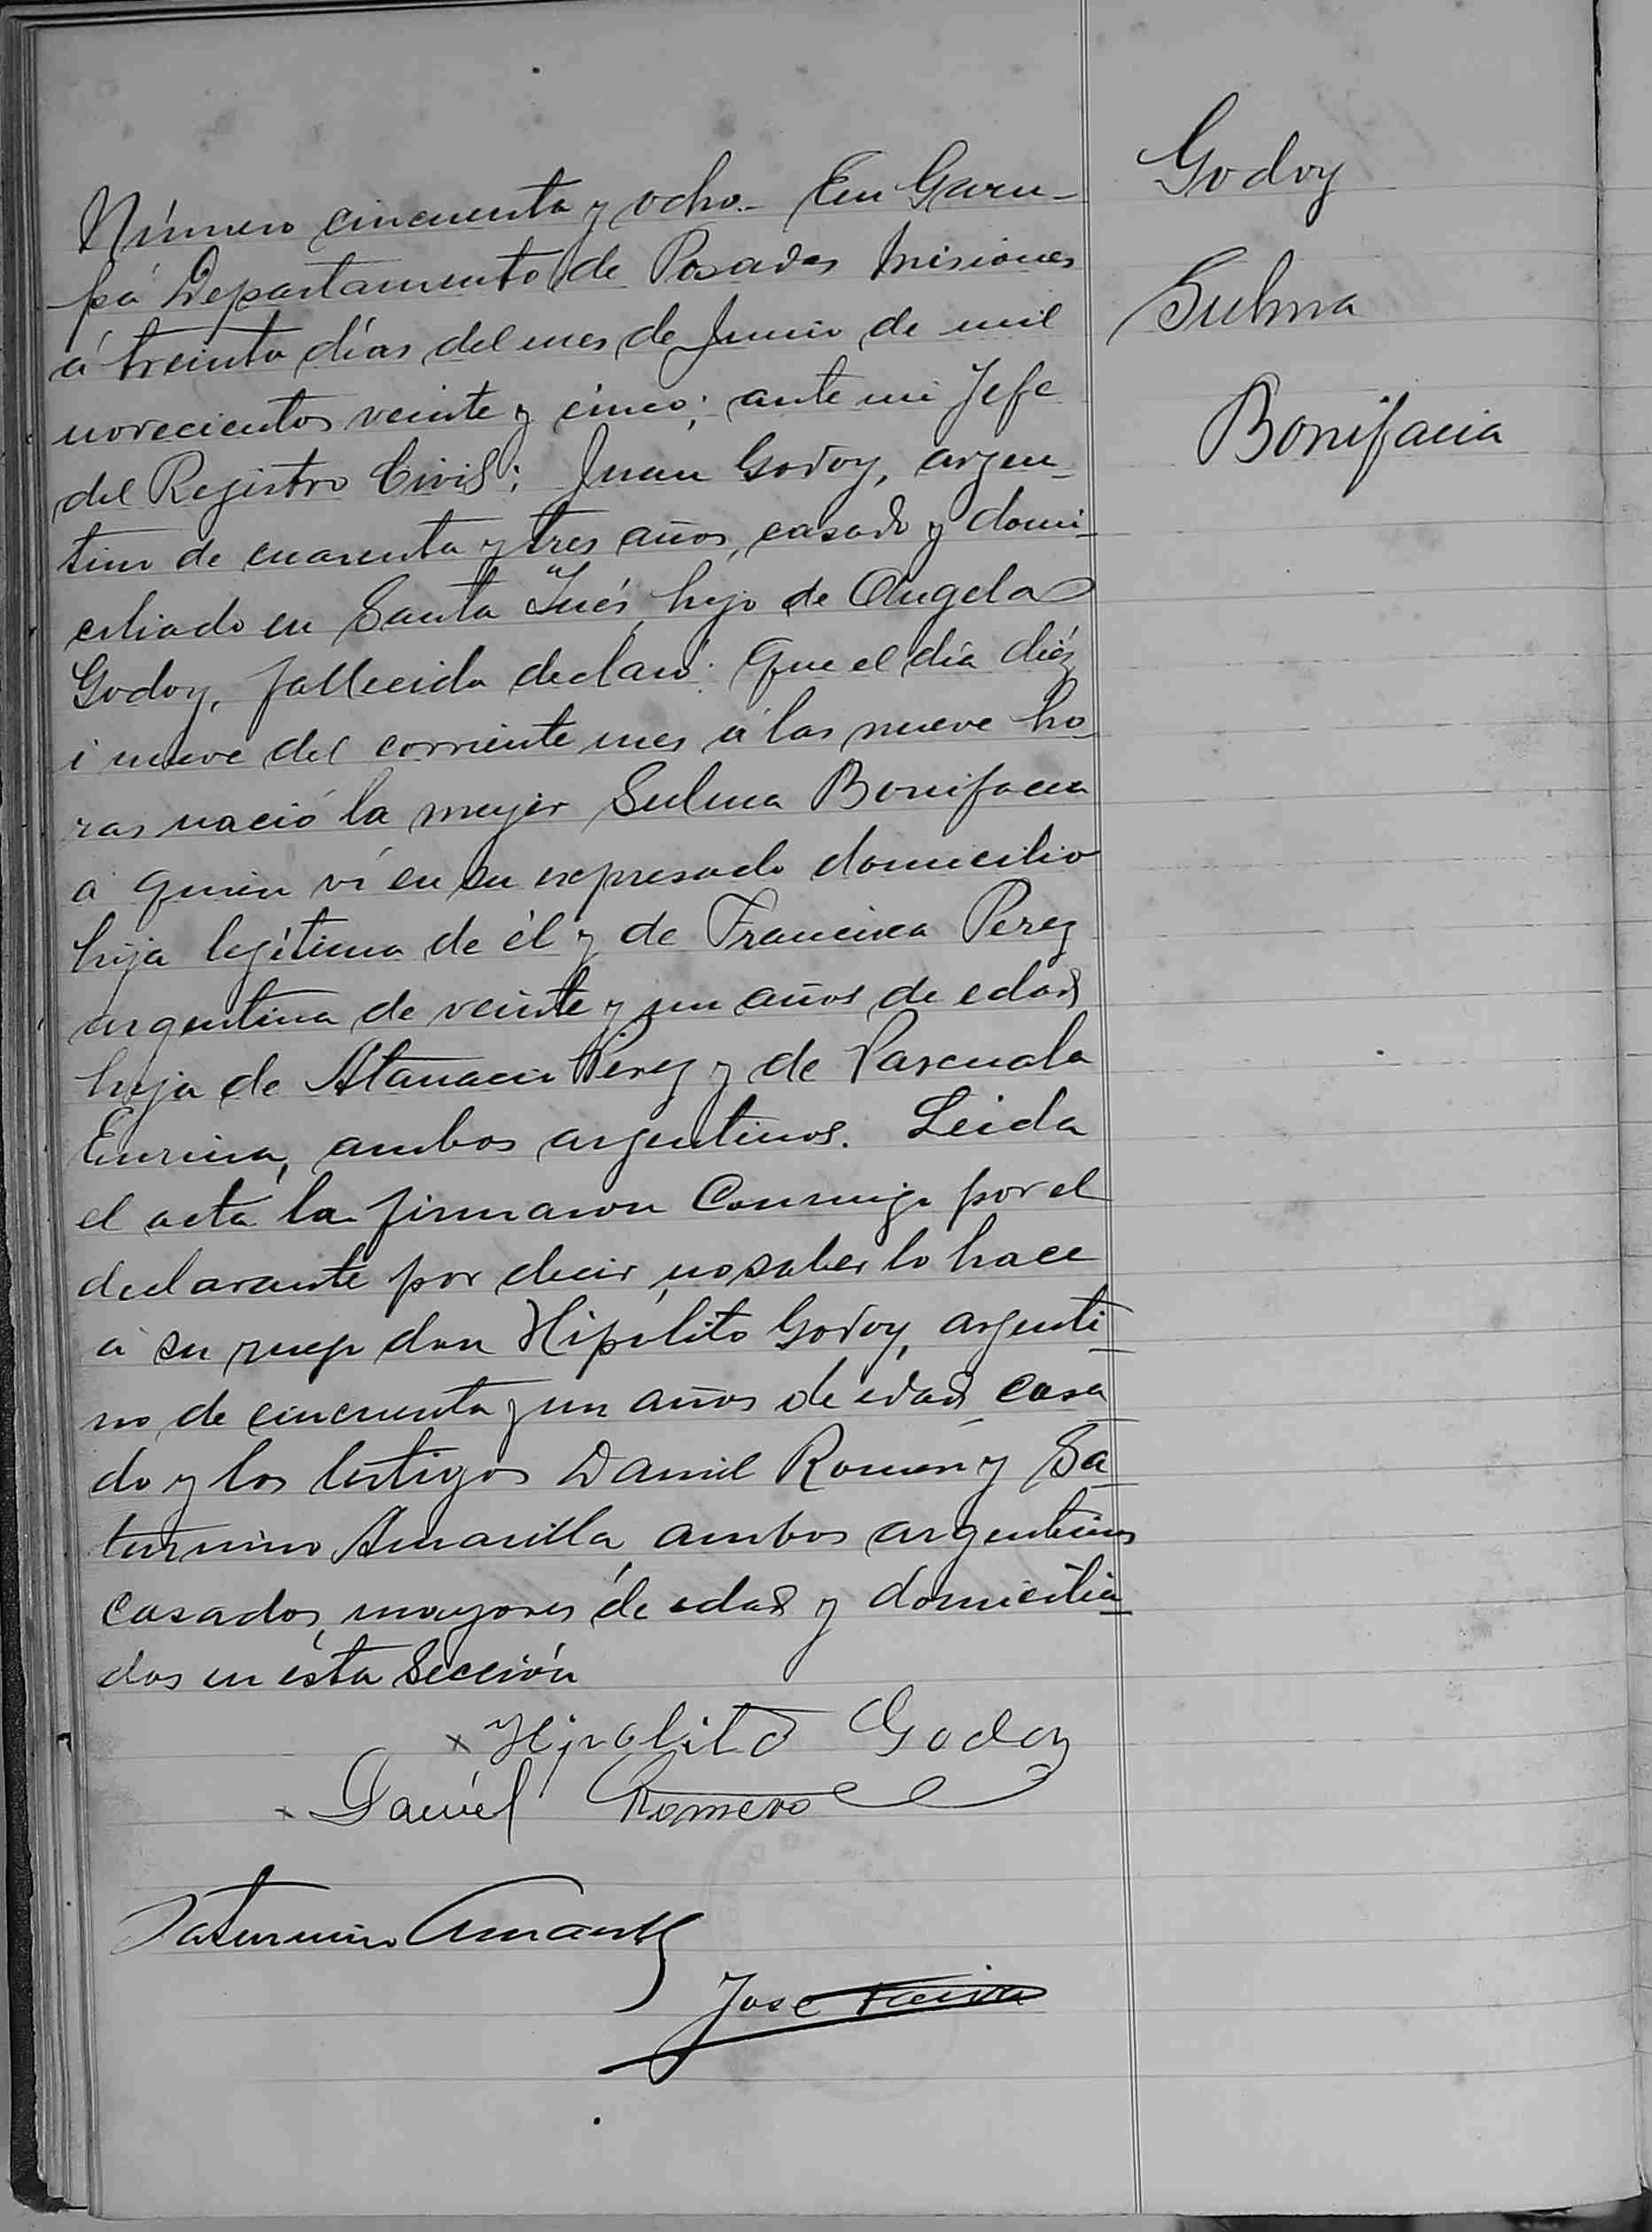 Número cincuenta y ocho.- En Garu-
pá Departamento de Posadas Misiones
á treinta días del mes de Junio de mil
novecientos veinte y cinco; ante mi Jefe
del Registro Civil; Juan Godoy, argen-
tino de cuarenta y tres años, casado y domi-
ciliado en Santa Inés, hijo de Angela
Godoy, fallecida declaró: Que el día diéz
i nueve del corriente mes á las nueve ho-
ras nació la mujer Sulma Bonifacia
á quien ví en su expresado domicilio
hija legítima de él y de Francisca Perez
argentina de veinte y un años de edad
hija de Atanacio Perez y de Pascuala
ambos argentinos. Leida
el acta la firmaron Conmigo por el
declarante por decir no saber lo hace
á su ruego don Hipólito Godoy, argenti-
no de cincuenta y un años de edad casa
do y los testigos Daniel Romero y Sa
turnino Amarilla ambos argentinos
casados, mayores de edad y domicilia-
dos en ésta Sección
Hipolito Godoy
Daniel Romero
Saturnino Amarilla
Jose
Godoy
Sulma
Bonifacia